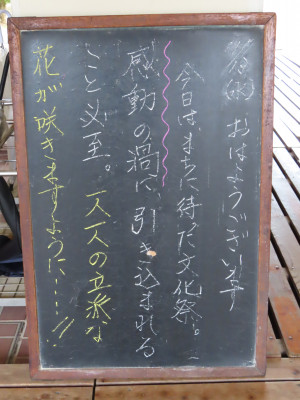 (水) おはようございます
今日は、まちに待った文化祭。
感動の渦に、引き込まれる
こと必至。一人一人の立派な
花が咲きますように……!!